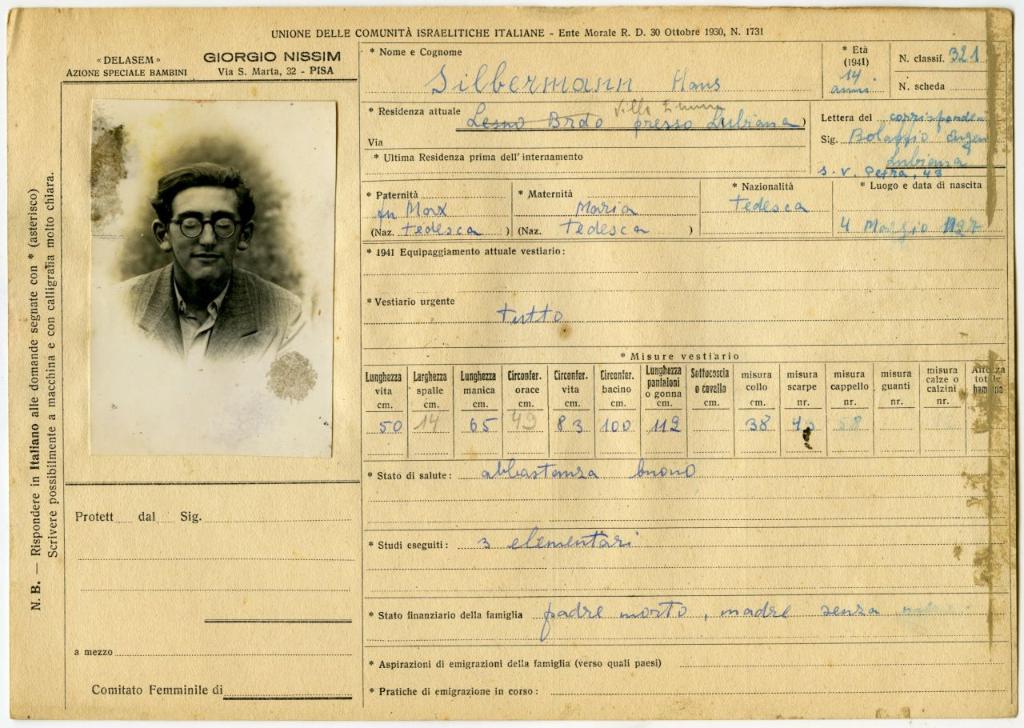 UNIONE DELLE COMUNITÀ ISRAELITICHE ITALIANE - Ente Morale R. D. 30 Ottobre 1930, N. 1731
« DELASEM »
AZIONE SPECIALE BAMBINI
GIORGIO NISSIM
Via S. Marta, 32 - PISA
* Nome e Cognome
Silbermann Hans
* Età
(1941)
14
anni
N. classif. 321
N. scheda
* Residenza attuale Villa Emma
Lesno Brdo presso Lubiana )
Via
* Ultima Residenza prima dell'internamento
Lettera del corrisponden
Sig. Bolaffio
Lubiana
S. V. Petra, 43
* Paternità
fu Max
(Naz. tedesca )
* Maternità
Maria
(Naz. tedesca )
* Nazionalità
tedesca
* Luogo e data di nascita
4 1927
* 1941 Equipaggiamento attuale vestiario :
* Vestiario urgente
tutto
* Misure vestiario
Lunghezza vita cm. 50
Larghezza spalle cm. 14
Lunghezza manica cm. 65
Circonfer. orace cm. 49
Circonfer. vita cm. 83
Circonfer. bacino cm. 100
Lunghezza pantaloni o gonna cm. 112
Sottocoscia o cavallo cm.
misura collo cm. 38
misura scarpe nr.
misura cappello nr. 58
misura guanti nr.
misura calze o calzini nr.
* Stato di salute : abbastanza buono
* Studi eseguiti : 3 elementari
* Stato finanziario della famiglia padre morto, madre senza
* Aspirazioni di emigrazioni della famiglia (verso quali paesi)
* Pratiche di emigrazione in corso :
Protett dal Sig.
a mezzo
Comitato Femminile di
N. B. — Rispondere in Italiano alle domande segnate con * (asterisco)
Scrivere possibilmente a macchina e con calligrafia molto chiara.